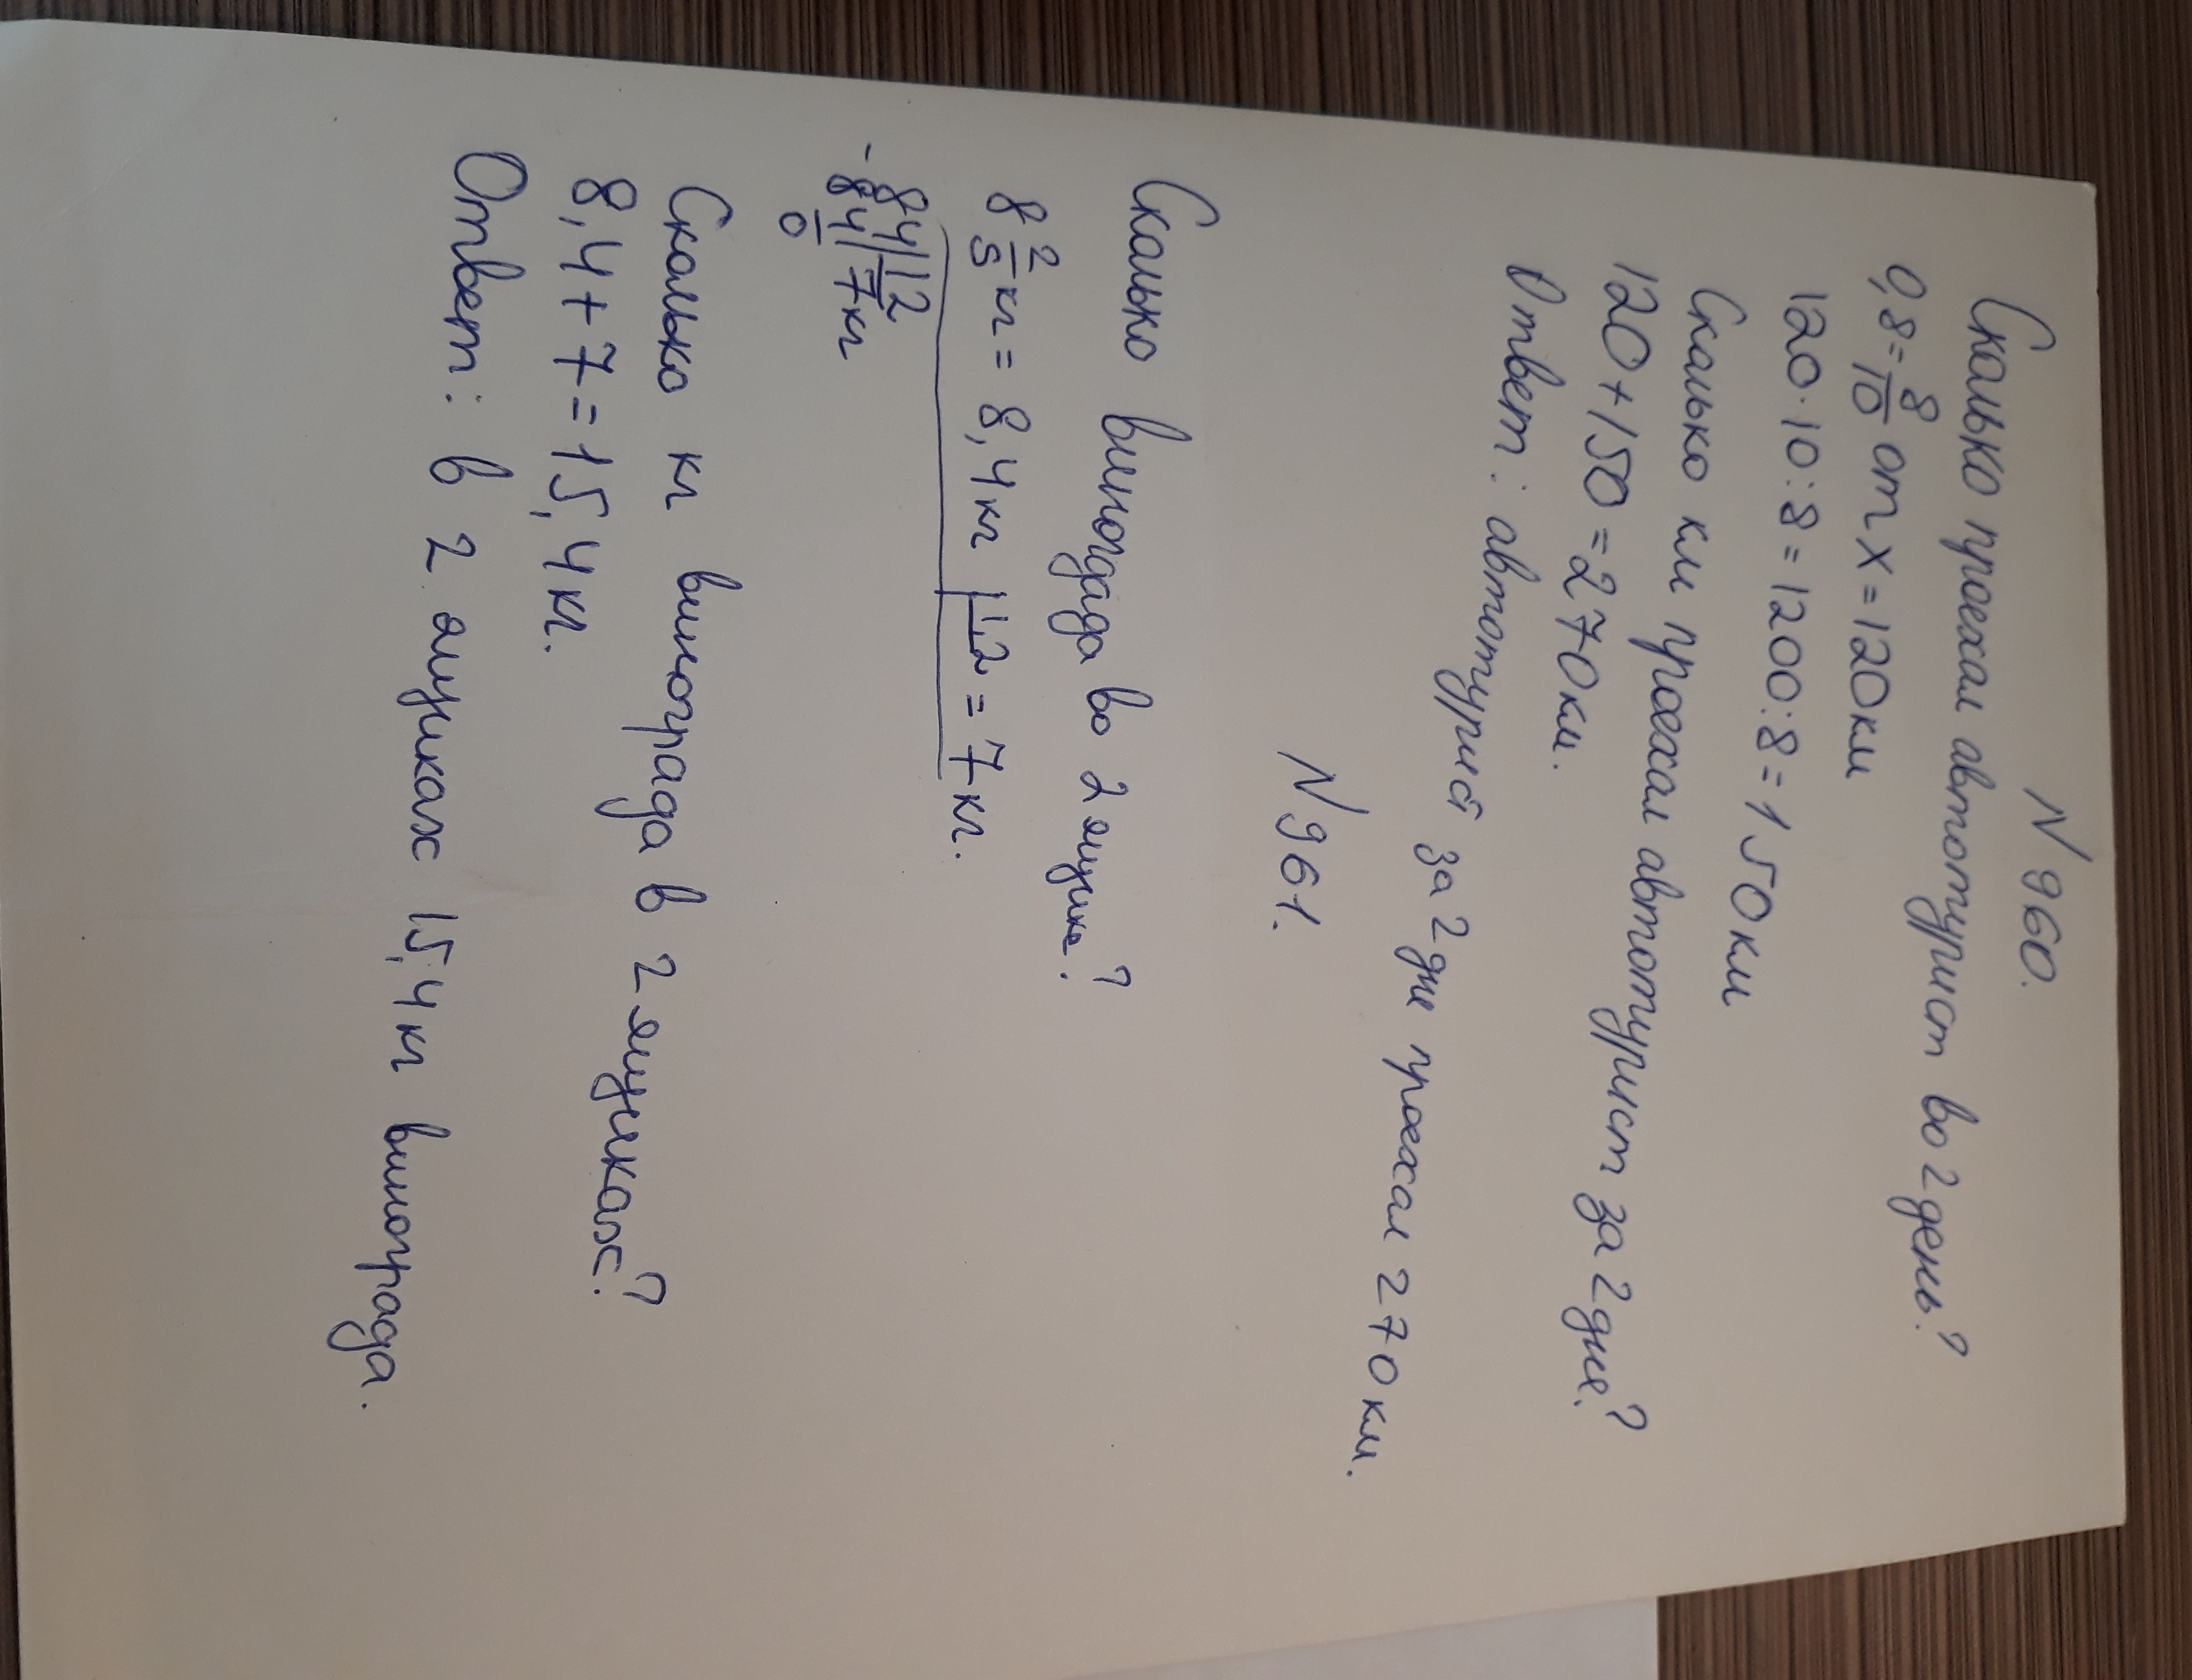 N 960.
Сколько проехал автотурист во 2 день?
0,8 = 8/10 от x = 120 км
120 · 10 : 8 = 1200 : 8 = 150 км
Сколько км проехал автотурист за 2 дня?
120 + 150 = 270 км.
Ответ: автотурист за 2 дня проехал 270 км.
N 961.
Сколько винограда во 2 ящике?
8 2/5 кг = 8,4 кг | 1,2 = 7 кг.
84 | 12
- 84 | 7 кг
0
Сколько кг винограда в 2 ящиках?
8,4 + 7 = 15,4 кг.
Ответ: в 2 ящиках 15,4 кг винограда.